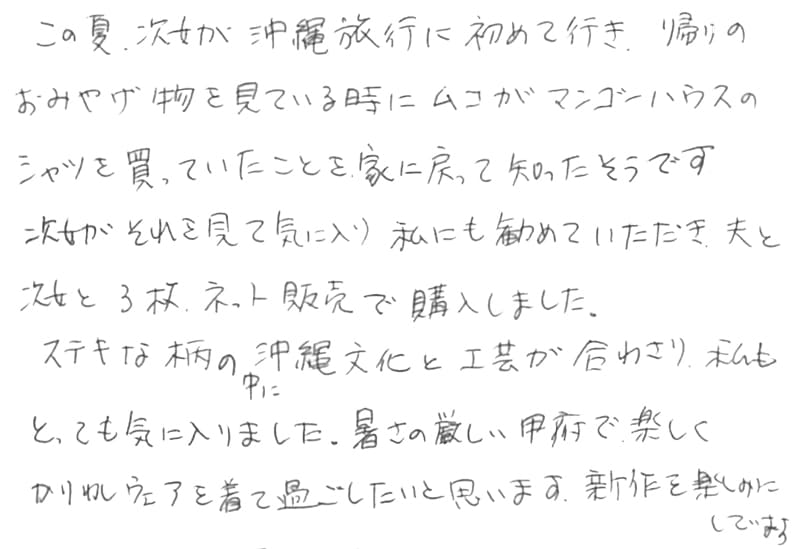 この夏、次女が沖縄旅行に初めて行き、帰りの
おみやげ物を見ている時にムコがマンゴーハウスの
シャツを買っていたことを、家に戻って知ったそうです
次女がそれを見て気に入り 私にも勧めていただき、夫と
次女と3枚、ネット販売で購入しました。
ステキな柄の中に沖縄文化と工芸が合わさり、私も
とっても気に入りました。暑さの厳しい甲府で、楽しく
かりゆしウェアを着て過ごしたいと思います。新作を楽しみに
しています